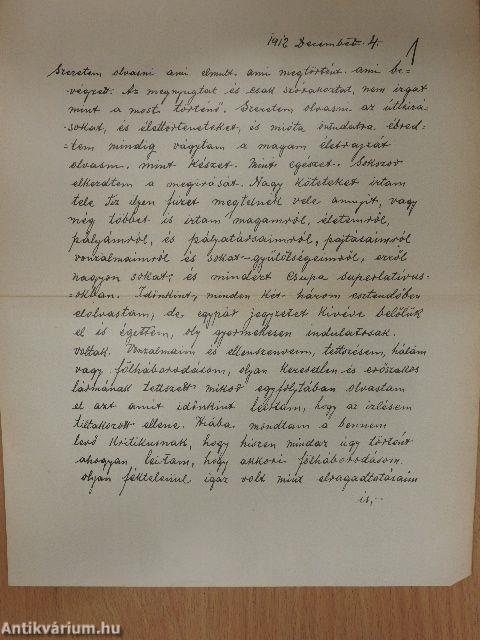 1912 December 4.
1
Szeretem olvasni ami elmult. ami megtörtént. ami be=
végzett. Az megnyugtat és csak szórakoztat, nem izgat
mint a most történő. Szeretem olvasni az útleirá=
sokat, és élettörténeteket, és mióta öntudatra ébred=
=tem mindig vágytam a magam életrajzát
elvasni. mint készet. Mint egészet. Sokszor
elkezdtem a megirását. Nagy köteteket irtam
tele tiz ilyen füzet megtelnék vele annyit, vagy
még többet is irtam magamról, életemről,
pályámról, és pályatársaimról, pajtásaimról
vonzalmaimról és sokat gyűlölségeimről, erről
nagyon sokat; és mindezt csupa superlativus=
=okban. Időnkint, minden két három esztendőben
elolvastam, de egypár jegyzetet kivéve belőlük
el is égettem, oly gyermekesen indulatosak
voltak. Vonzalmaim és ellenszenveim, tetszésem, hálám
vagy fölháborodásom, olyan keresetlen és erőszakos
lármának tetszett mikor egyfolytában olvastam
el azt amit időnkint leirtam, hogy az izlésem
tiltakozott ellene. Hiába mondtam a bennem
levő kritikusnak, hogy hiszen mindaz úgy történt
ahogyan leirtam, hogy akkori fölháborodásom
olyan féktelenül igaz volt mint elragadtatásaim
is,-
Antikvárium.hu